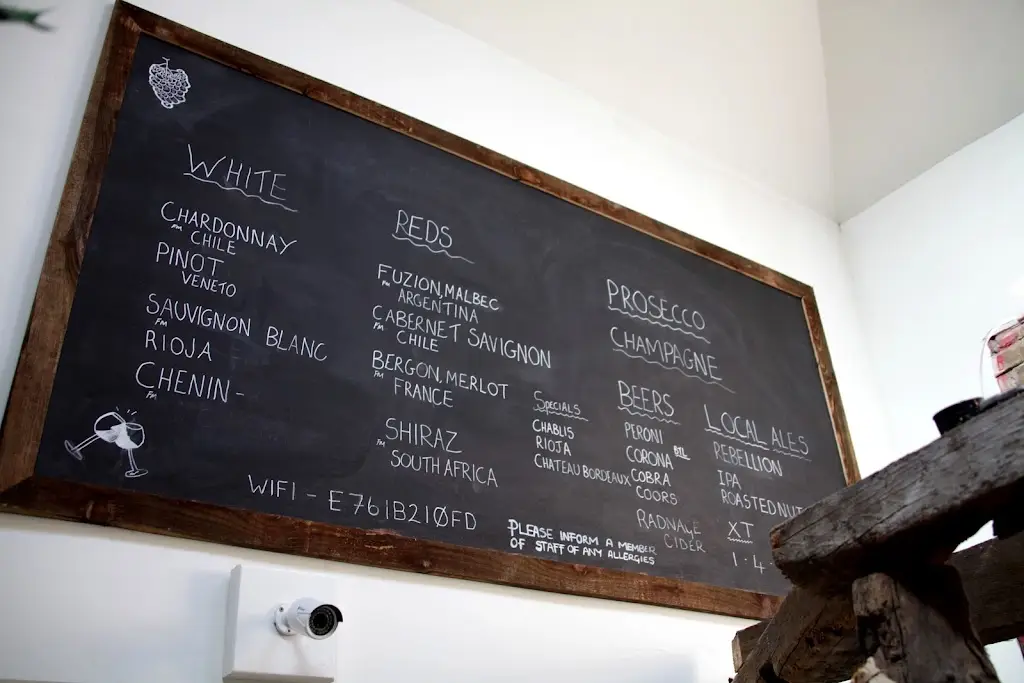 WHITE
CHARDONNAY
FM CHILE
PINOT
VENETO
SAUVIGNON BLANC
FM
RIOJA
CHENIN -
FM
REDS
FUZION, MALBEC
FM ARGENTINA
CABERNET SAVIGNON
FM CHILE
BERGON, MERLOT
FM FRANCE
SHIRAZ
FM SOUTH AFRICA
SPECIALS
CHABLIS
RIOJA
CHATEAU BORDEAUX
PROSECCO
CHAMPAGNE
BEERS
PERONI
CORONA BTL
COBRA
COORS
RADNAGE
CIDER
LOCAL ALES
REBELLION
IPA
ROASTED NUT
XT
1 · 4 -
WIFI - E761B210FD
PLEASE INFORM A MEMBER
OF STAFF OF ANY ALLERGIES